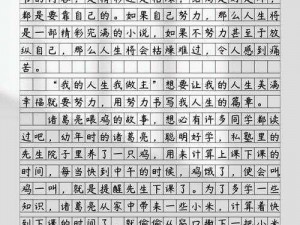 都是要靠自己的。如果自己努力，那么人生将
是一部精彩完满的小说，如果不努力甚至于放
纵自己，那么人生将会枯燥难过，令人感到痛
苦。
“我的人生我做主”想要让我的人生美满
幸福就要努力，用努力书写我人生的篇章。
诸葛亮喂鸡的故事，想必有许多同学都读
过吧，幼年时的诸葛亮，聪明好学，私塾里的
先生院子里养了一只鸡，用来计算上课下课的
时间，每当快到中午的时候，鸡饿了，便会叫
鸡一叫，就是提醒先生下课了。为了多学一些
知识，诸葛亮从家中带来一些小米，计算着快